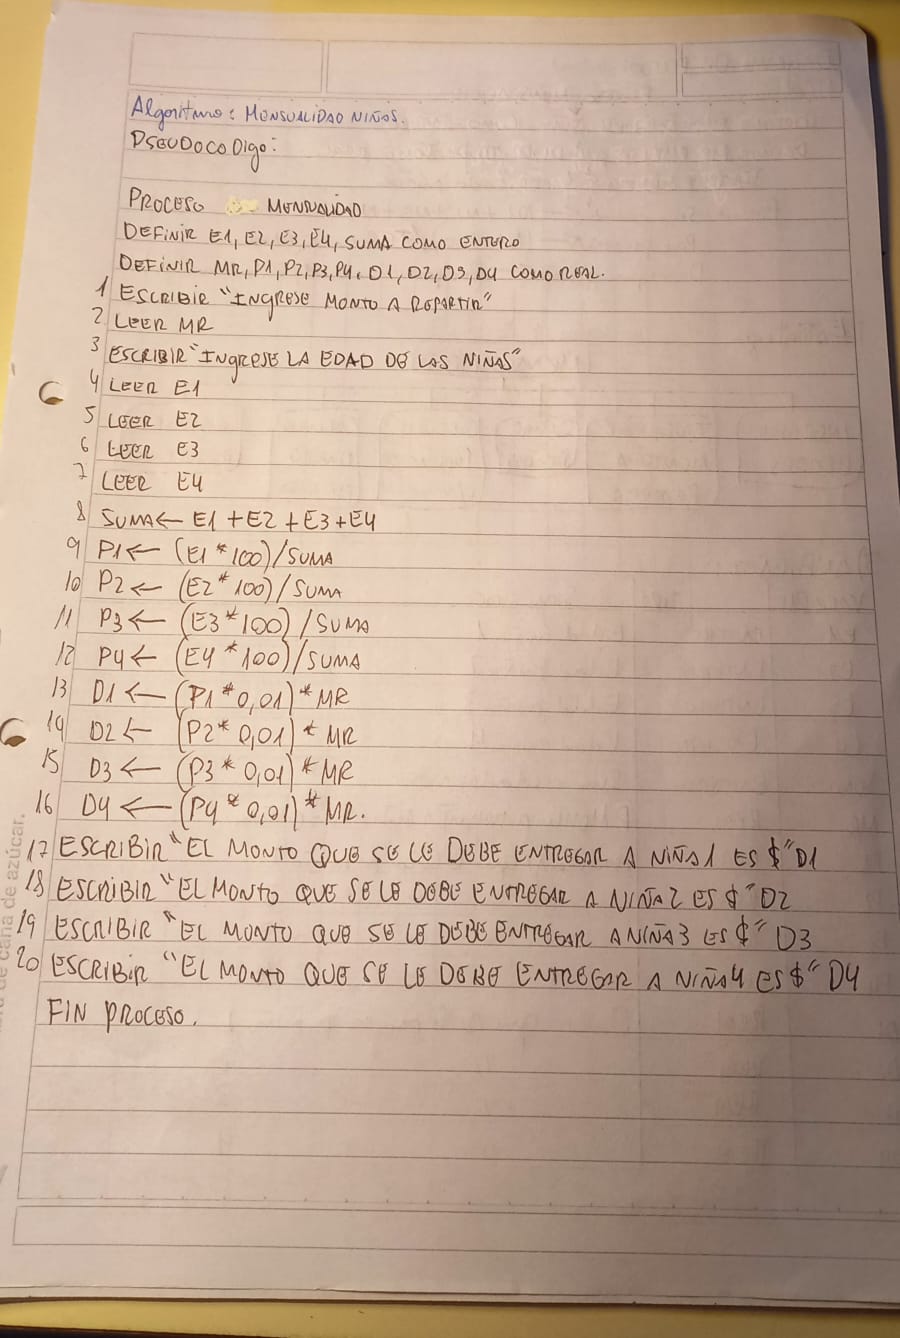 Algoritmo: MENSUALIDAD NIÑAS.
PSEUDOCODIgo:
PROCESO MENSUALIDAD
DEFINIR E1, E2, E3, E4, SUMA COMO ENTERO
DEFINIR MR, P1, P2, P3, P4, D1, D2, D3, D4 COMO REAL.
1 ESCRIBIR "INgRESE MONTO A REPARTIR"
2 LEER MR
3 ESCRIBIR "INgRESE LA EDAD DE LAS NIÑAS"
4 LEER E1
5 LEER E2
6 LEER E3
7 LEER E4
8 SUMA ← E1 + E2 + E3 + E4
9 P1 ← (E1 * 100) / SUMA
10 P2 ← (E2 * 100) / SUMA
11 P3 ← (E3 * 100) / SUMA
12 P4 ← (E4 * 100) / SUMA
13 D1 ← (P1 * 0,01) * MR
14 D2 ← (P2 * 0,01) * MR
15 D3 ← (P3 * 0,01) * MR
16 D4 ← (P4 * 0,01) * MR.
17 ESCRIBIR "EL MONTO QUE SE LE DEBE ENTREGAR A NIÑA1 ES $" D1
18 ESCRIBIR "EL MONTO QUE SE LE DEBE ENTREGAR A NIÑA2 ES $" D2
19 ESCRIBIR "EL MONTO QUE SE LE DEBE ENTREGAR A NIÑA3 ES $" D3
20 ESCRIBIR "EL MONTO QUE SE LE DEBE ENTREGAR A NIÑA4 ES $" D4
FIN PROCESO.
de caña de azúcar.